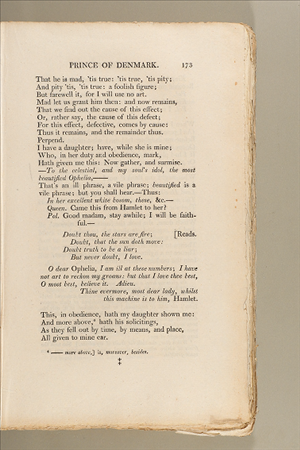 PRINCE OF DENMARK. 173
That he is mad, 'tis true: 'tis true, 'tis pity;
And pity 'tis, 'tis true: a foolish figure;
But farewell it, for I will use no art.
Mad let us grant him then: and now remains,
That we find out the cause of this effect;
Or, rather say, the cause of this defect;
For this effect, defective, comes by cause:
Thus it remains, and the remainder thus.
Perpend.
I have a daughter; have, while she is mine;
Who, in her duty and obedience, mark,
Hath given me this: Now gather, and surmise.
—To the celestial, and my soul's idol, the most
beautified Ophelia,——
That's an ill phrase, a vile phrase; beautified is a
vile phrase: but you shall hear.—Thus:
In her excellent white bosom, these, &c.—
Queen. Came this from Hamlet to her?
Pol. Good madam, stay awhile; I will be faith-
ful.—
Doubt thou, the stars are fire; [Reads.
Doubt, that the sun doth move:
Doubt truth to be a liar;
But never doubt, I love.
O dear Ophelia, I am ill at these numbers; I have
not art to reckon my groans: but that I love thee best,
O most best, believe it. Adieu.
Thine evermore, most dear lady, whilst
this machine is to him, Hamlet.
This, in obedience, hath my daughter shown me:
And more above,* hath his solicitings,
As they fell out by time, by means, and place,
All given to mine ear.
* —— more above,] is, moreover, besides.
‡